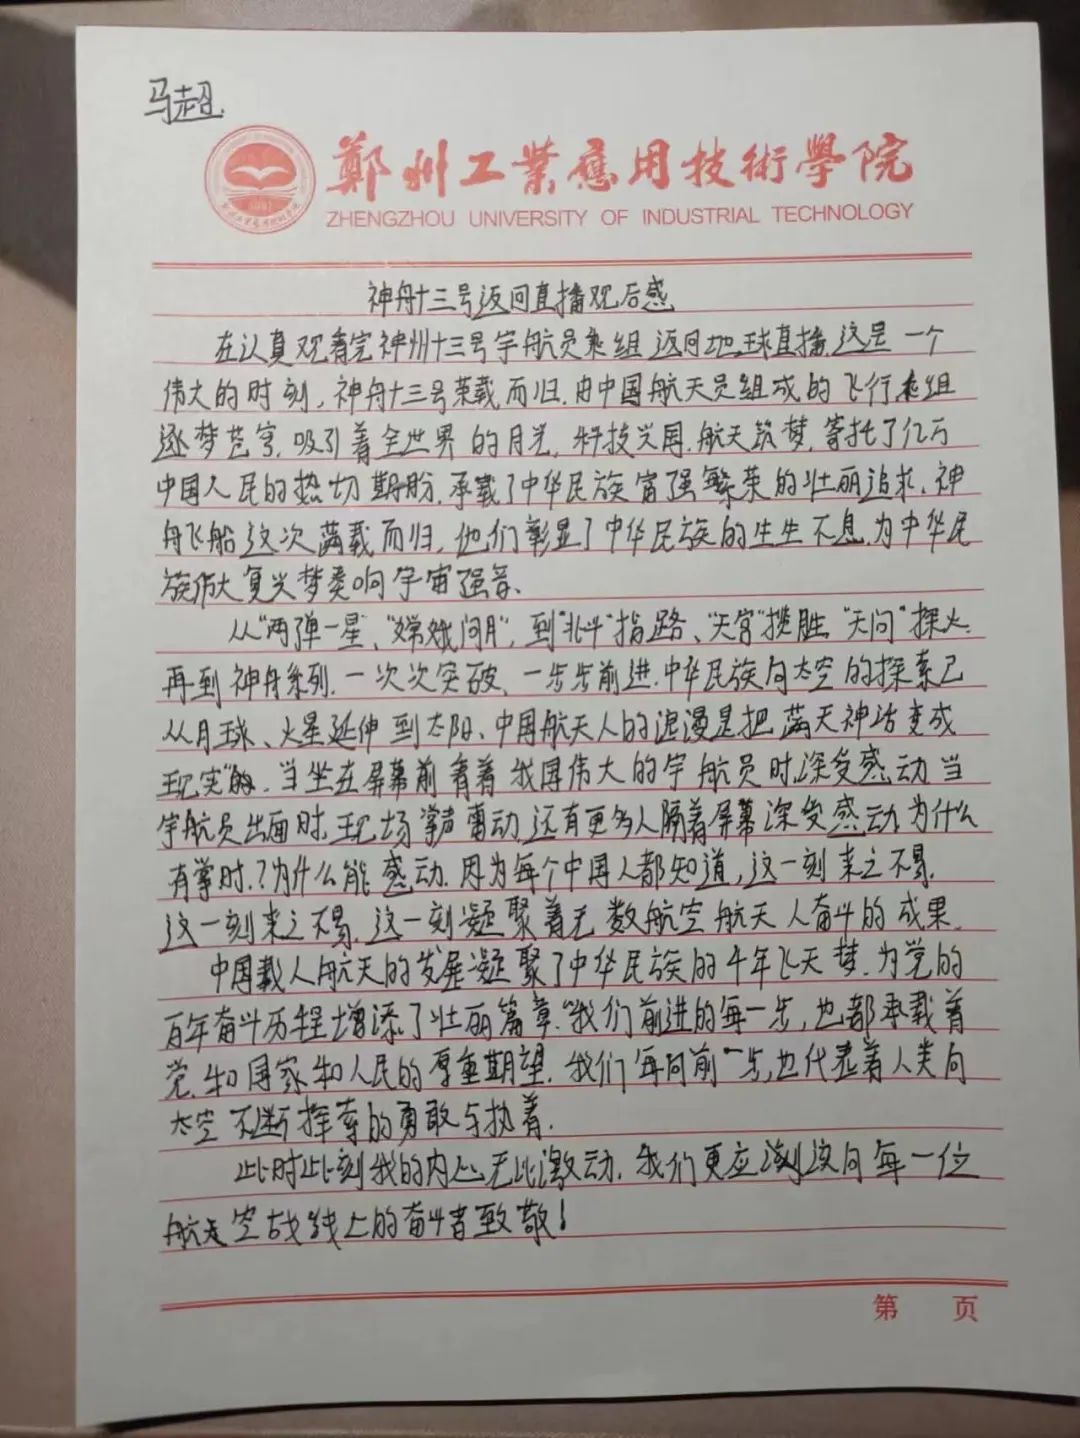 马超.
鄭州工業應用技術學院
ZHENGZHOU UNIVERSITY OF INDUSTRIAL TECHNOLOGY
神舟十三号返回直播观后感
在认真观看完神州十三号宇航员乘组返回地球直播.这是一个
伟大的时刻,神舟十三号荣载而归.由中国航天员组成的飞行乘组
逐梦苍穹.吸引着全世界的月光,科技兴国.航天筑梦.寄托了亿万
中国人民的热切期盼.承载了中华民族富强繁荣的壮丽追求.神
舟飞船这次满载而归.他们彰显了中华民族的生生不息.为中华民
族伟大复兴梦奏响宇宙强音.
从"两弹一星"、"嫦娥问月",到"北斗"指路、"天宫"揽胜."天问"探火.
再到神舟系列.一次次突破、一步步前进.中华民族向太空的探索已
从月球、火星延伸到太阳、中国航天人的浪漫是把满天神话变成
现实"的.当坐在屏幕前看着我国伟大的宇航员时.深受感动当
宇航员出面时.现场掌声雷动.还有更多人隔着屏幕深受感动.为什么
有掌时.?为什么能感动.因为每个中国人都知道,这一刻来之不易.
这一刻来之不易.这一刻凝聚着无数航空航天人奋斗的成果.
中国载人航天的发展凝聚了中华民族的千年飞天梦.为党的
百年奋斗历程增添了壮丽篇章."我们前进的每一步,也都承载着
党.和国家和人民的厚重期望.我们每向前一步,也代表着人类向
太空不断探索的勇敢与执着.
此时此刻我的内心无比激动.我们更应该向每一位
航天空战线上的奋斗者致敬!
第 页